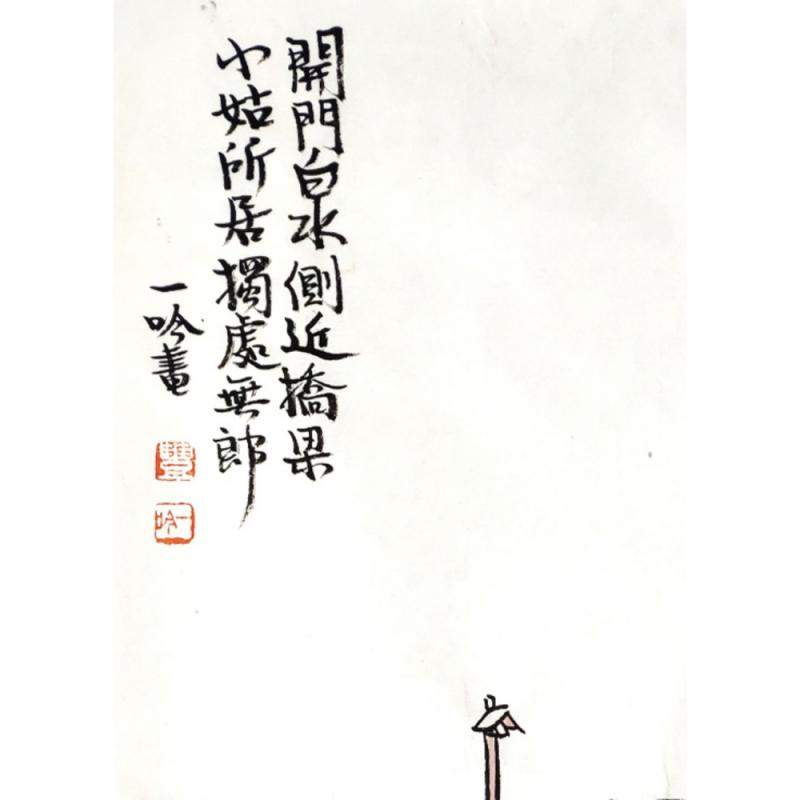 開門白水側近橋梁
小姑所居獨處無郎
一吟畫
豐
一吟